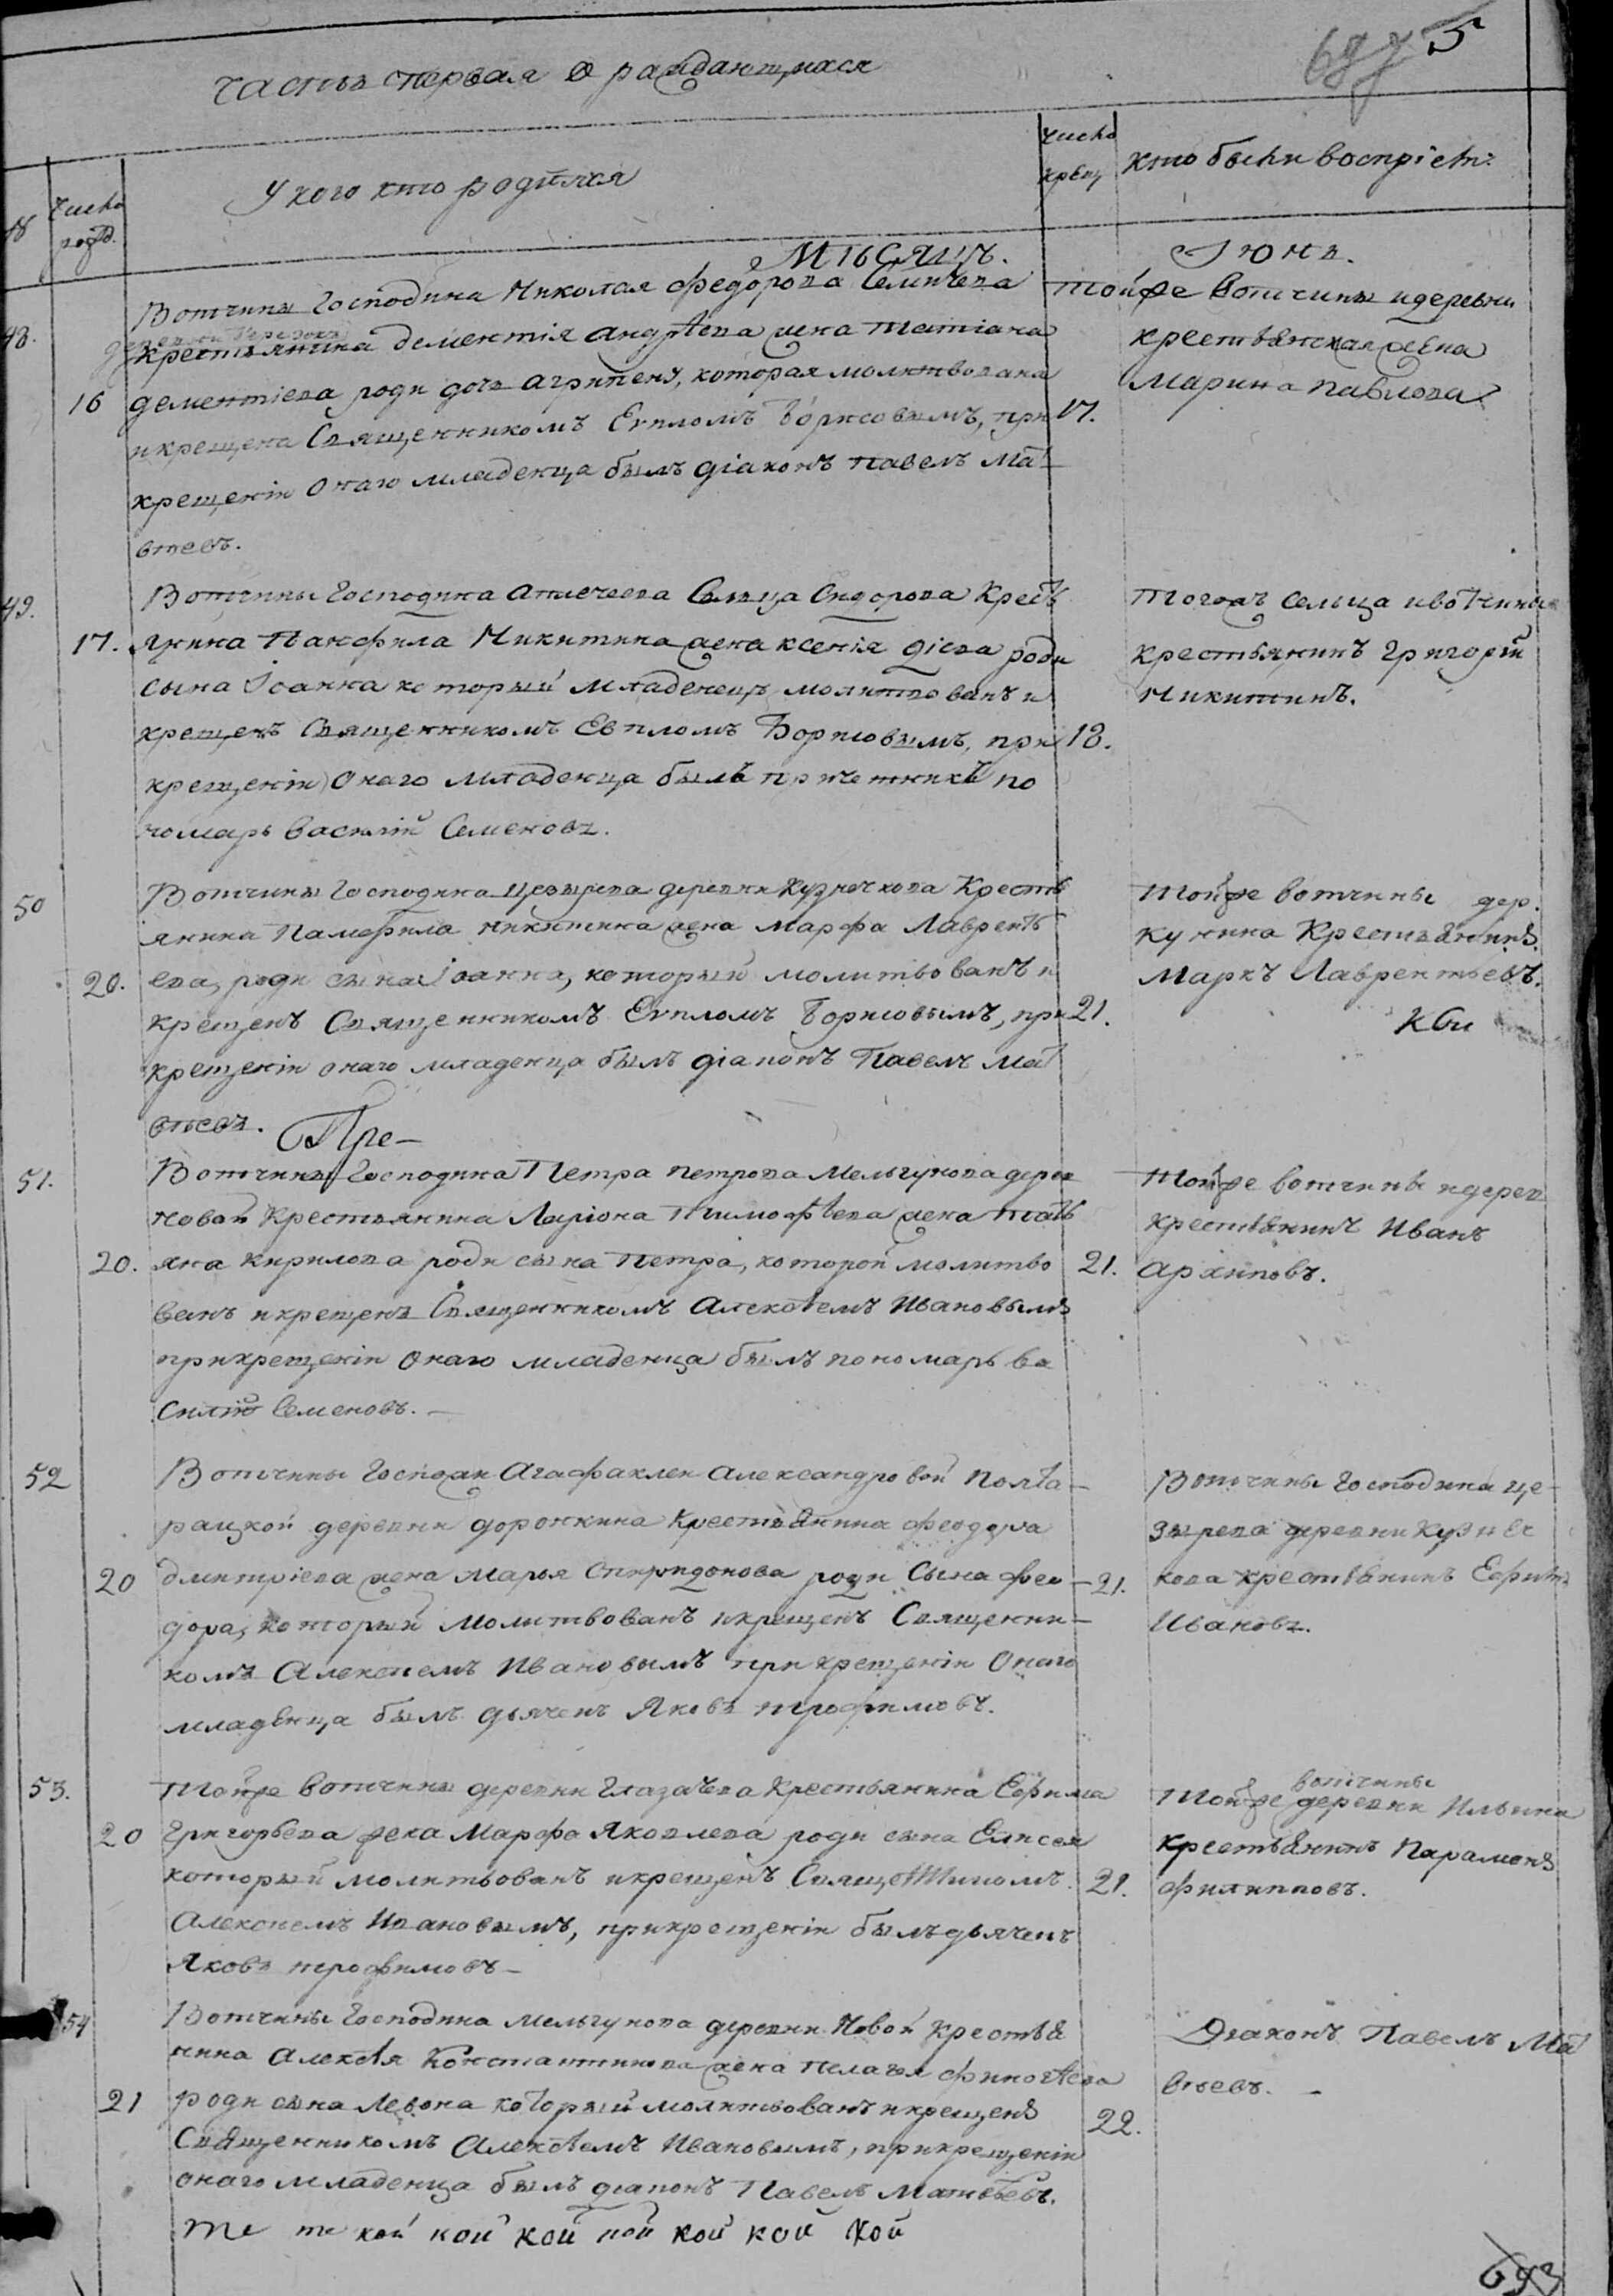 5
часть первая о раждающихся
№
Число рожд.
У кого кто родился
Число крещ
кто были воспріем:
Мѣсяцъ.
Іюнь.
48.
Вотчины Господина Николая Федорова Селичева
крестьянина Дементія Андрѣева жена Татіана
16
Дементіева роди дочь Агрипену, которая молитвована
и крещена Священникомъ Евпломъ Борисовымъ, при
17.
крещеніи онаго младенца былъ діаконъ Павелъ Ма
твеевъ.
Тойже вотчины и деревни
крестьянская жена
Марина Павлова
49.
Вотчины Господина сельца Сидорова Кресть
17.
янина Панфила Никитина жена Ксенія роди
сына Іоанна который младенецъ молитвованъ и
крещенъ Священникомъ Евпломъ Борисовымъ, при
18.
крещеніи онаго младенца былъ причетникъ по
номарь Василій Семеновъ.
Тогожъ сельца и вотчины
крестьянинъ Григорій
Никитинъ.
50
Вотчины Господина Цезырева деревни Кузнечкова Кресть
янина Памфила Никитина жена Марфа Лавренть
20.
ева, роди сына Іоанна, который молитвованъ и
крещенъ Священникомъ Евпломъ Борисовымъ, при
21.
крещеніи онаго младенца былъ діаконъ Павелъ Ма
твеевъ.
Пре-
Тойже вотчины дер.
Кунина Крестьянинъ
Маркъ Лаврентьевъ.
51.
Вотчины Господина Петра Петрова Мельгунова дерев
Новой Крестьянина Ларіона Тимофѣева жена Тать
20.
яна Кирилова роди сына Петра, которой молитво
21.
ванъ и крещенъ Священникомъ Алексѣемъ Ивановымъ
при крещеніи онаго младенца былъ пономарь Ва
силій Семеновъ.-
Тойже вотчины и дерев
крестьянинъ Иванъ
Архиповъ.
52
Вотчины Госпожи Агафаклеи Александровой Полта-
рацкой деревни Доронкина Крестьянина Феодора
20
Дмитріева жена Марья Спиридонова роди сына Фео-
21.
дора, который молитвованъ и крещенъ Священни-
комъ Алексеемъ Ивановымъ при крещеніи онаго
младенца былъ дьячекъ Яковъ Трофимовъ.
Вотчины Господина Це-
зырева деревни Кузнеч
кова крестьянинъ Ефимъ
Ивановъ.
53.
Тойже вотчины деревни Глазачева Крестьянина Ефима
20
Григорьева жена Марфа Яковлева роди сына Елисея
который молитвованъ и крещенъ Священникомъ
21.
Алексеемъ Ивановымъ, при крещеніи былъ дьячекъ
Яковъ Трофимовъ-
вотчины
Тойже деревни Ильина
крестьянинъ Парамонъ
Филипповъ.
54
Вотчины Господина Мельгунова деревни Новой Крестья
нина Алексѣя Константинова жена Пелагея Финогѣева
21
роди сына Леона который молитвованъ и крещенъ
22.
Священникомъ Алексѣемъ Ивановымъ, при крещеніи
онаго младенца былъ діаконъ Павелъ Матвеевъ.
Діаконъ Павелъ Ма
твеевъ. -
те те кой кой кой кой кой кой кой
693